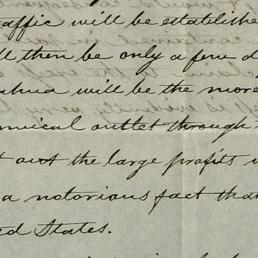 raffic will be established
ll then be only a few d
uahua will be the more
omical outlet through
t out the large profits
a notorious fact that
ed States.